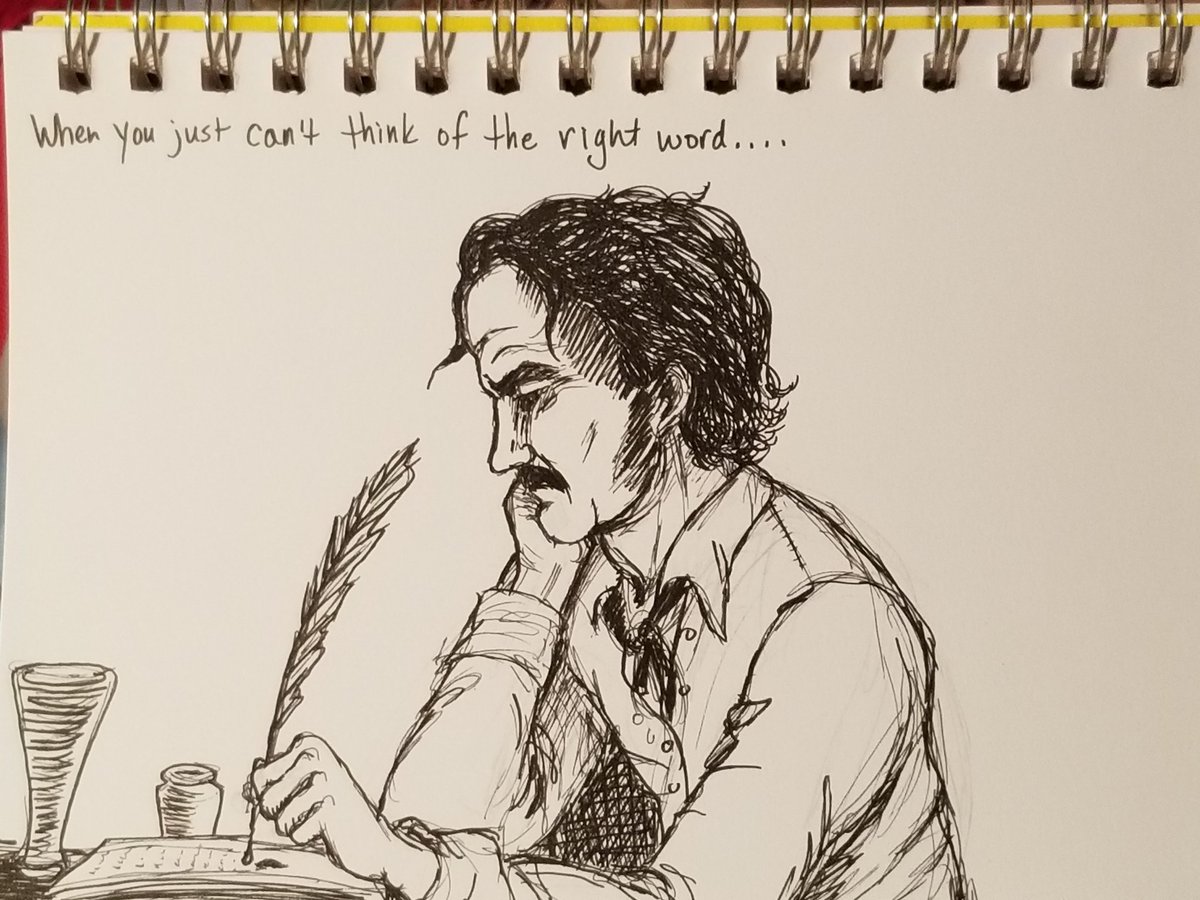 When you just can't think of the right word....